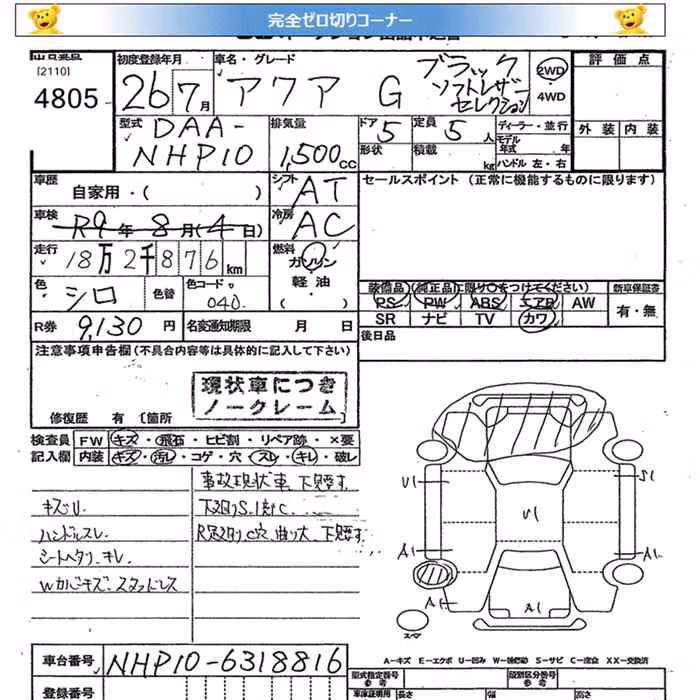 完全ゼロ切りコーナー
[2110]
4805
初度登録年月
26年7月
車名・グレード
アクア G ブラックソフトレザーセレクション
2WD
4WD
評価点
外装 内装
型式
DAA-
NHP10
排気量
1,500cc
ドア 5
定員 5人
形状
積載 kg
ディーラー・並行
モデル年式 年
ハンドル 左・右
車歴
自家用・( )
シフト AT
車検
R9年8月(4日)
冷房 AC
走行
18万2千876km
燃料
ガソリン
軽油
( )
色
シロ
色替
色コード
040
R券 9,130円
名変通知期限 月 日
セールスポイント (正常に機能するものに限ります)
装備品(純正品に限り○をつけてください)
新車保証書
PS PW ABS エアB AW
有・無
SR ナビ TV カワ
後日品
注意事項申告欄(不具合内容等は具体的に記入して下さい)
現状車につき
ノークレーム
修復歴 有〔箇所 〕
検査員 FW キズ・飛石・ヒビ割・リペア跡・×要
記入欄 内装 キズ・汚レ・コゲ・穴・スレ・キレ・破レ
事故現状車 下見要す
キズU
下廻りS.
ハンドルスレ
シートヘタリ、キレ
Wカバーキズ、スタッドレス
U1
S1
U1
A1
A1
A1
A1
スペア
A-キズ E-エクボ U-凹み S-サビ C-腐食 XX-交換済
車台番号 NHP10-6318816
登録番号
型式指定番号
参考
類別区分番号
参考
車庫証明用
長さ
幅
高さ